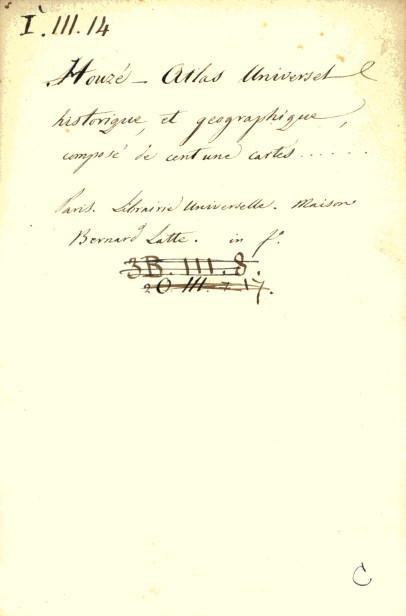 I. III. 14
Houzé - Atlas Universel
historique, et geographique,
composé de cent une cartes......
Paris. Librairie Universelle. Maison
Bernard Latte. in fº.
3B. III. 8.
2O. III. 7. 17.
C